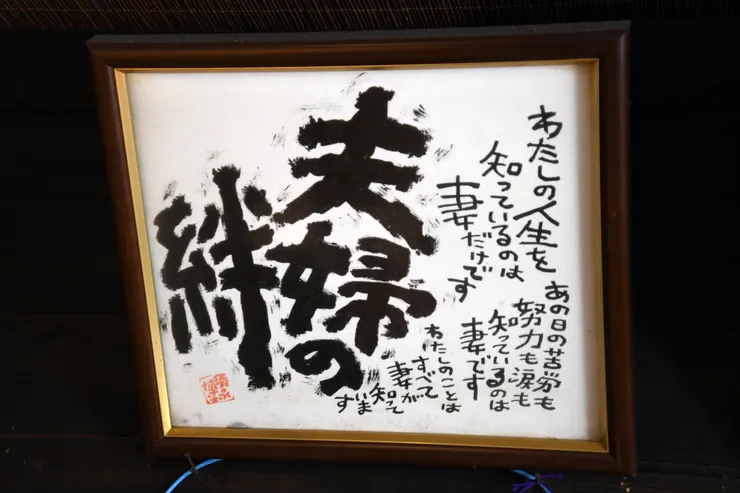 わたしの人生を
知っているのは
妻だけです
あの日の苦労も
努力も涙も
知っているのは
妻です
わたしのことは
すべて
妻が
知って
います
夫婦の
絆